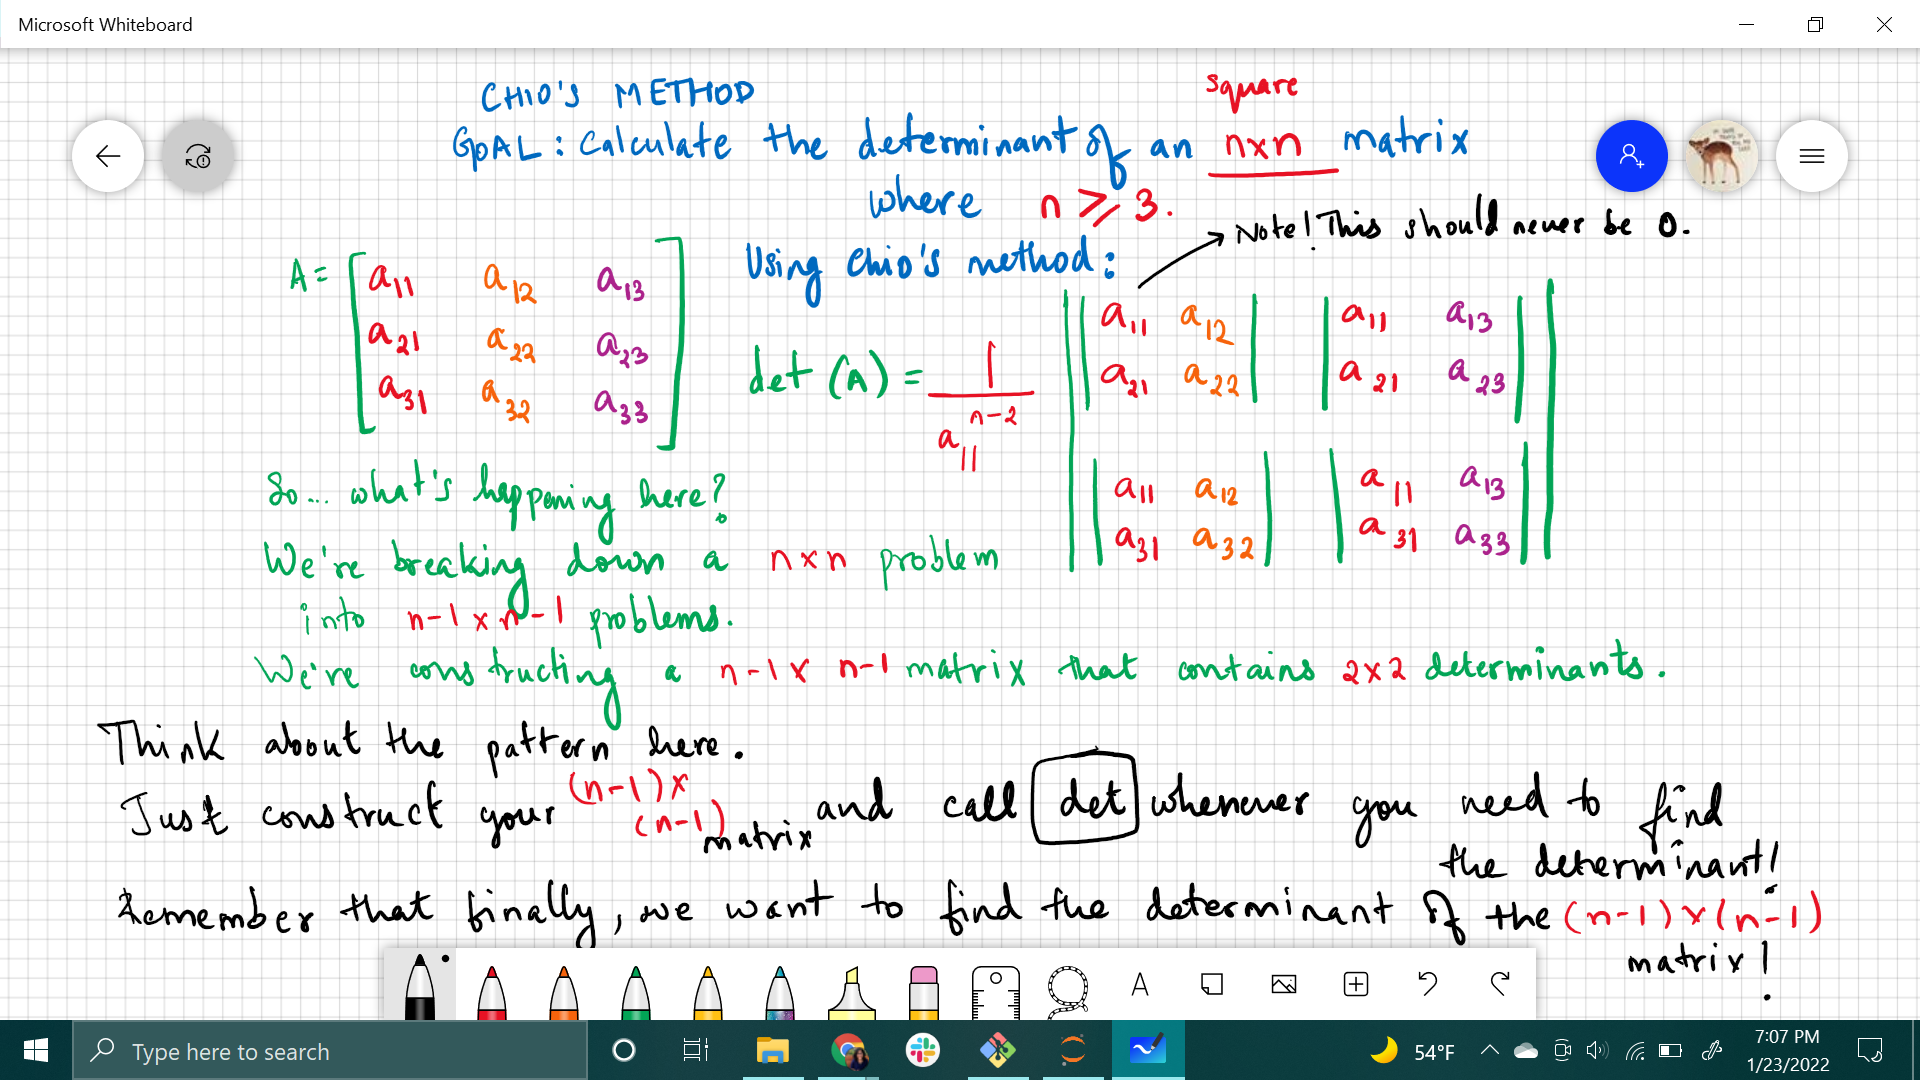 Microsoft Whiteboard
CHIO'S METHOD
square
GOAL: Calculate the determinant of an nxn matrix
where n ⩾ 3.
Note! This should never be 0.
Using Chio's method:
A = [ a11 a12 a13
a21 a22 a23
a31 a32 a33 ]
det (A) = 1 / a11^(n-2)
| | a11 a12 | | a11 a13 | |
| | a21 a22 | | a21 a23 | |
| | a11 a12 | | a11 a13 | |
| | a31 a32 | | a31 a33 | |
So... what's happening here?
We're breaking down a nxn problem
into n-1 x n-1 problems.
We're constructing a n-1 x n-1 matrix that contains 2x2 determinants.
Think about the pattern here.
Just construct your (n-1) x (n-1) matrix and call det whenever you need to find
the determinant!
Remember that finally, we want to find the determinant of the (n-1) x (n-1)
matrix!
A
Type here to search
54°F
7:07 PM
1/23/2022